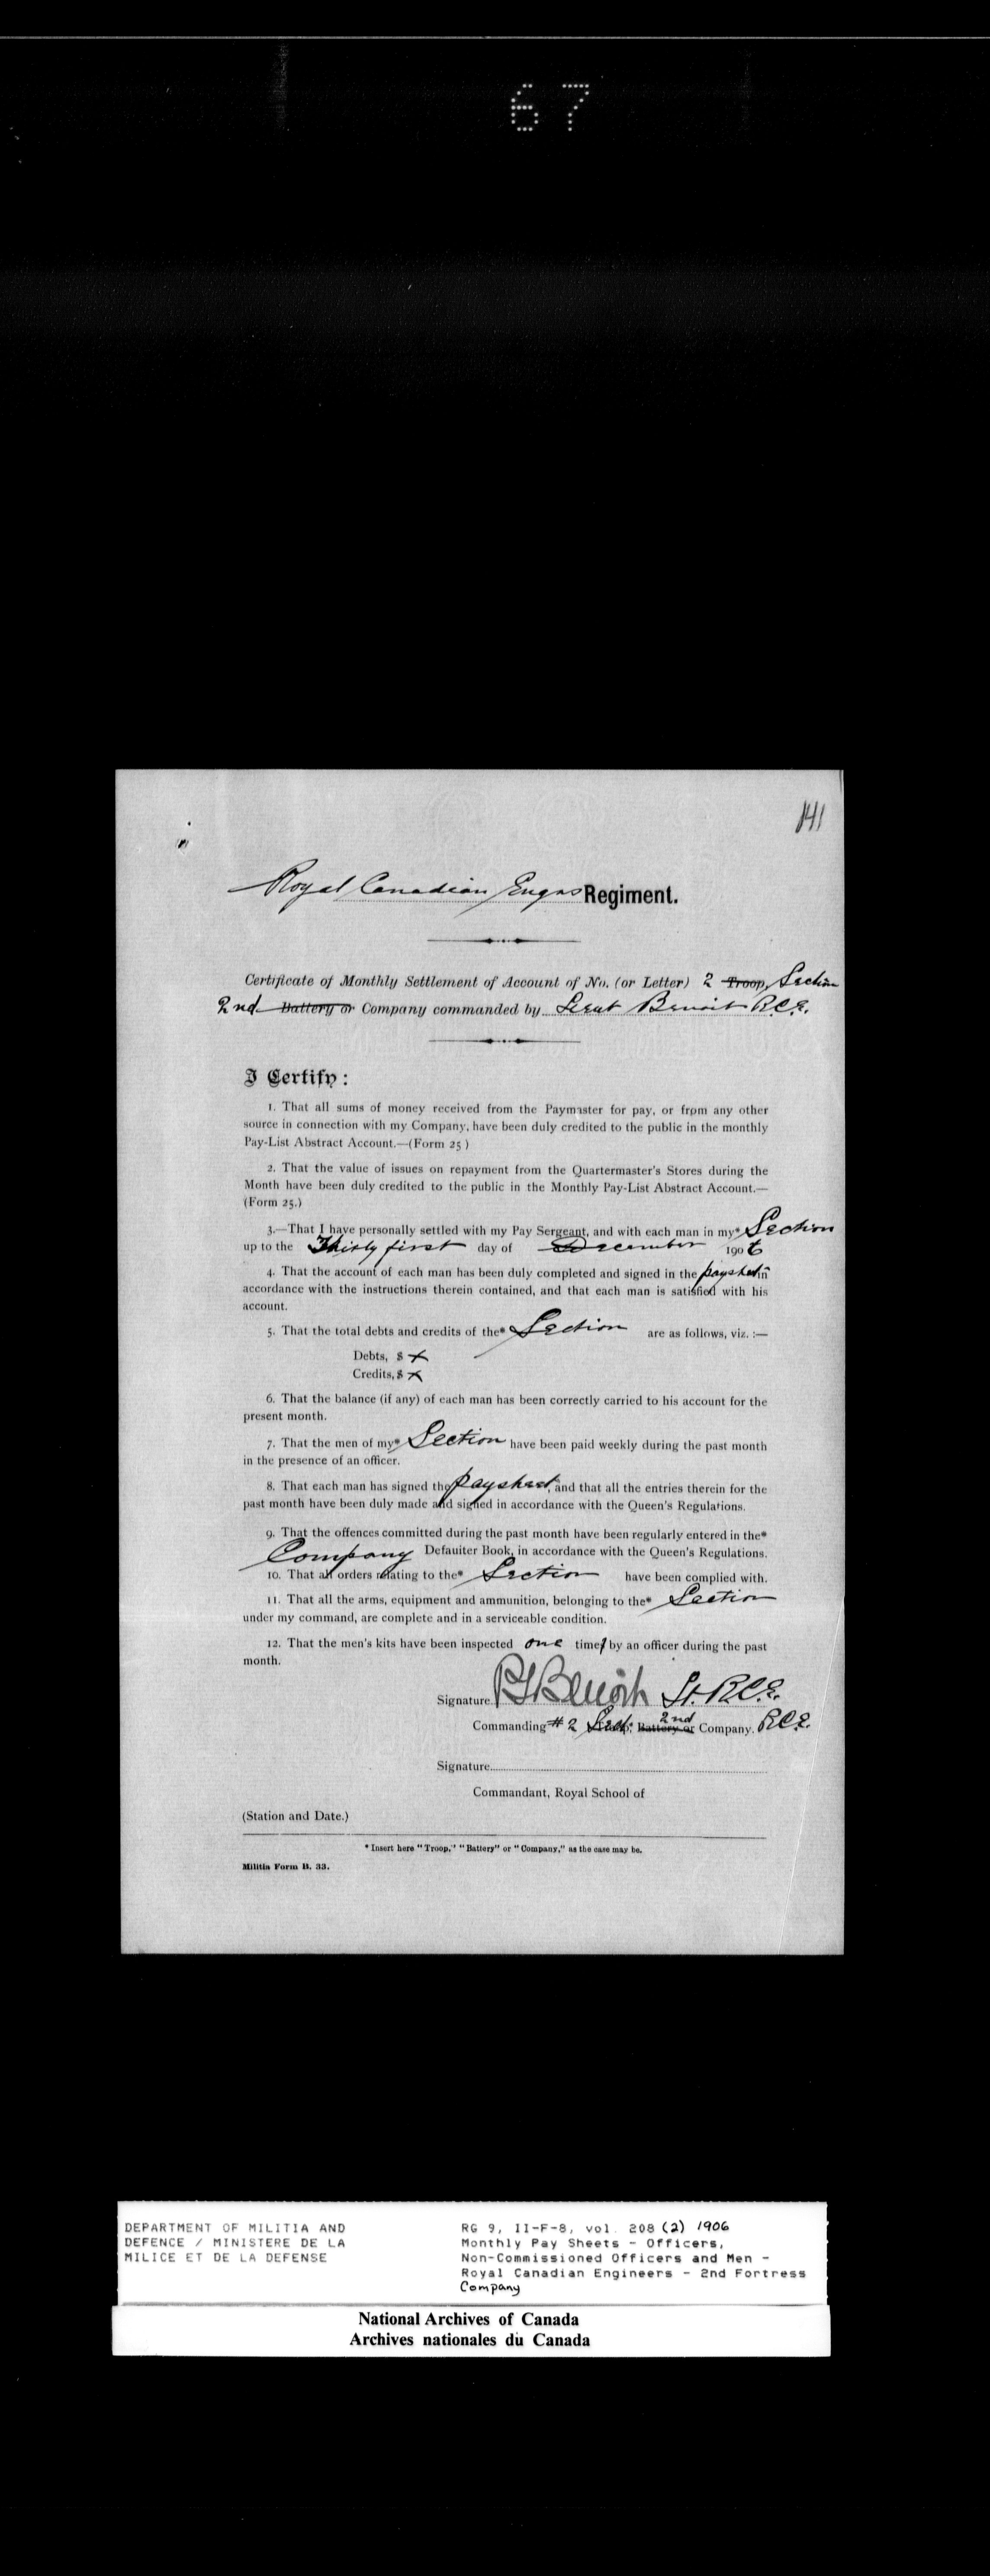 67
141
Royal Canadian Engrs Regiment.
Certificate of Monthly Settlement of Account of No. (or Letter) 2 Troop, Section
2nd Battery or Company commanded by Lieut Benoit R.C.E.
I Certify:
1. That all sums of money received from the Paymaster for pay, or from any other
source in connection with my Company, have been duly credited to the public in the monthly
Pay-List Abstract Account.—(Form 25 )
2. That the value of issues on repayment from the Quartermaster's Stores during the
Month have been duly credited to the public in the Monthly Pay-List Abstract Account.—
(Form 25.)
3.—That I have personally settled with my Pay Sergeant, and with each man in my* Section
up to the Thirty first day of December 1906
4. That the account of each man has been duly completed and signed in the paysheet in
accordance with the instructions therein contained, and that each man is satisfied with his
account.
5. That the total debts and credits of the* Section are as follows, viz. :—
Debts, $ x
Credits, $ x
6. That the balance (if any) of each man has been correctly carried to his account for the
present month.
7. That the men of my* Section have been paid weekly during the past month
in the presence of an officer.
8. That each man has signed the paysheet, and that all the entries therein for the
past month have been duly made and signed in accordance with the Queen's Regulations.
9. That the offences committed during the past month have been regularly entered in the*
Company Defaulter Book, in accordance with the Queen's Regulations.
10. That all orders relating to the* Section have been complied with.
11. That all the arms, equipment and ammunition, belonging to the* Section
under my command, are complete and in a serviceable condition.
12. That the men's kits have been inspected one time by an officer during the past
month.
Signature Benoit Lt. R.C.E.
Commanding # 2 Sect. Battery or 2nd Company. R.C.E.
Signature
Commandant, Royal School of
(Station and Date.)
* Insert here "Troop," "Battery" or "Company," as the case may be.
Militia Form B. 33.
DEPARTMENT OF MILITIA AND
DEFENCE / MINISTERE DE LA
MILICE ET DE LA DEFENSE
RG 9, II-F-8, vol. 208 (2) 1906
Monthly Pay Sheets - Officers,
Non-Commissioned Officers and Men -
Royal Canadian Engineers - 2nd Fortress
Company
National Archives of Canada
Archives nationales du Canada